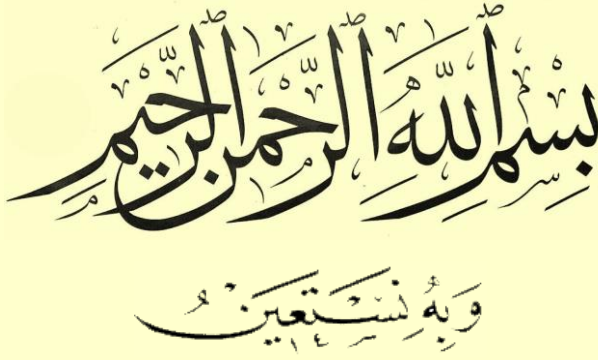 بِسْمِ اللّٰهِ الرَّحْمٰنِ الرَّحِيْمِ
وَبِهٖ نَسْتَعِيْنُ